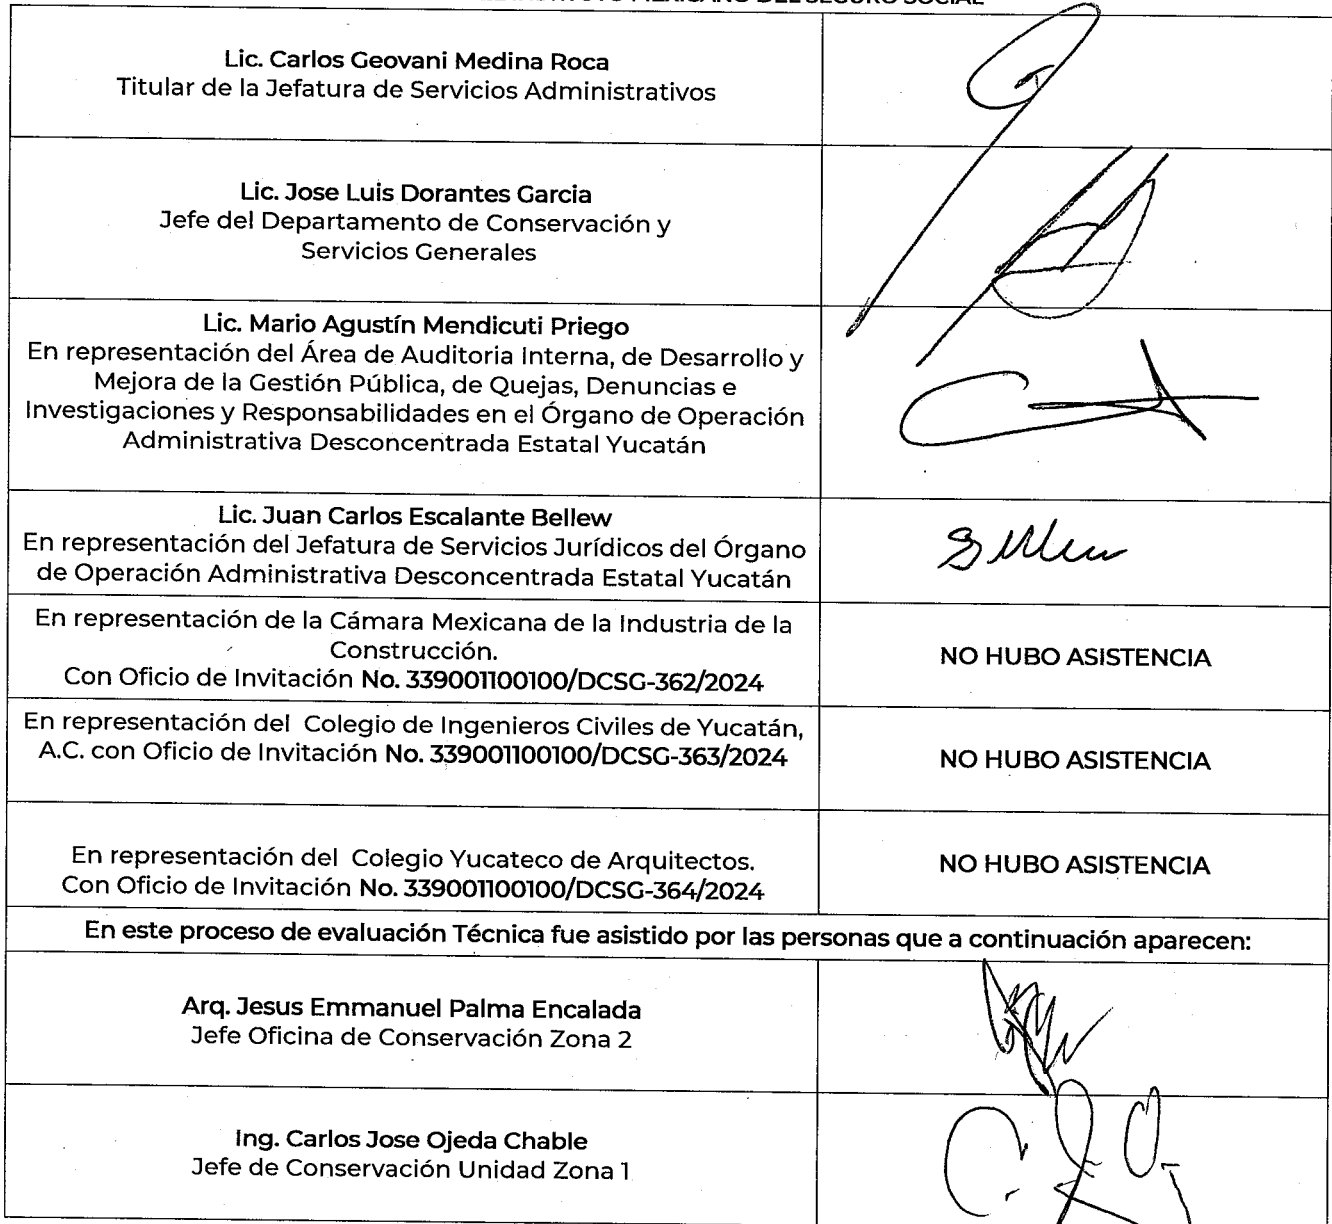 INSTITUTO MEXICANO DEL SEGURO SOCIAL
Lic. Carlos Geovani Medina Roca
Titular de la Jefatura de Servicios Administrativos
Lic. Jose Luis Dorantes Garcia
Jefe del Departamento de Conservación y
Servicios Generales
Lic. Mario Agustín Mendicuti Priego
En representación del Área de Auditoria Interna, de Desarrollo y
Mejora de la Gestión Pública, de Quejas, Denuncias e
Investigaciones y Responsabilidades en el Órgano de Operación
Administrativa Desconcentrada Estatal Yucatán
Lic. Juan Carlos Escalante Bellew
En representación del Jefatura de Servicios Jurídicos del Órgano
de Operación Administrativa Desconcentrada Estatal Yucatán
En representación de la Cámara Mexicana de la Industria de la
Construcción.
Con Oficio de Invitación No. 339001100100/DCSG-362/2024
NO HUBO ASISTENCIA
En representación del Colegio de Ingenieros Civiles de Yucatán,
A.C. con Oficio de Invitación No. 339001100100/DCSG-363/2024
NO HUBO ASISTENCIA
En representación del Colegio Yucateco de Arquitectos.
Con Oficio de Invitación No. 339001100100/DCSG-364/2024
NO HUBO ASISTENCIA
En este proceso de evaluación Técnica fue asistido por las personas que a continuación aparecen:
Arq. Jesus Emmanuel Palma Encalada
Jefe Oficina de Conservación Zona 2
Ing. Carlos Jose Ojeda Chable
Jefe de Conservación Unidad Zona 1